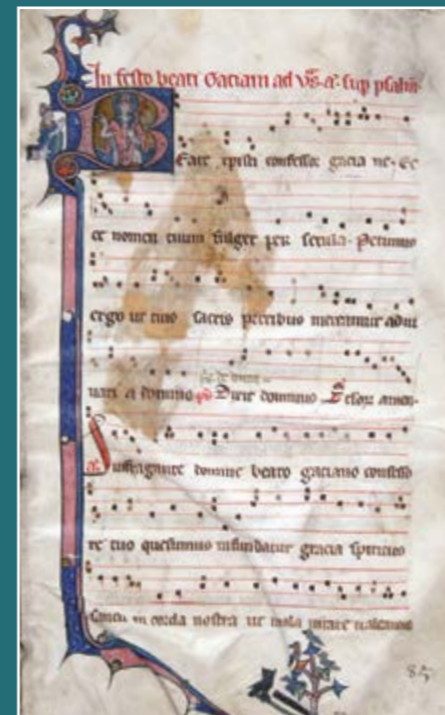 In festo beati Gaciani ad vs. a. sup psalm
Beate xpisti confessor gacia ne. Ec
ce nomen tuum fulget per secula. Petimus
ergo ut tuis sacris precibus mereamur adiu
uari a domino ps Dixit dominus
Suffragante domine beato gaciano confesso
re tuo quesumus infundatur gracia spiritus
sancti in corda nostra ut mala uitare ualeamus
85